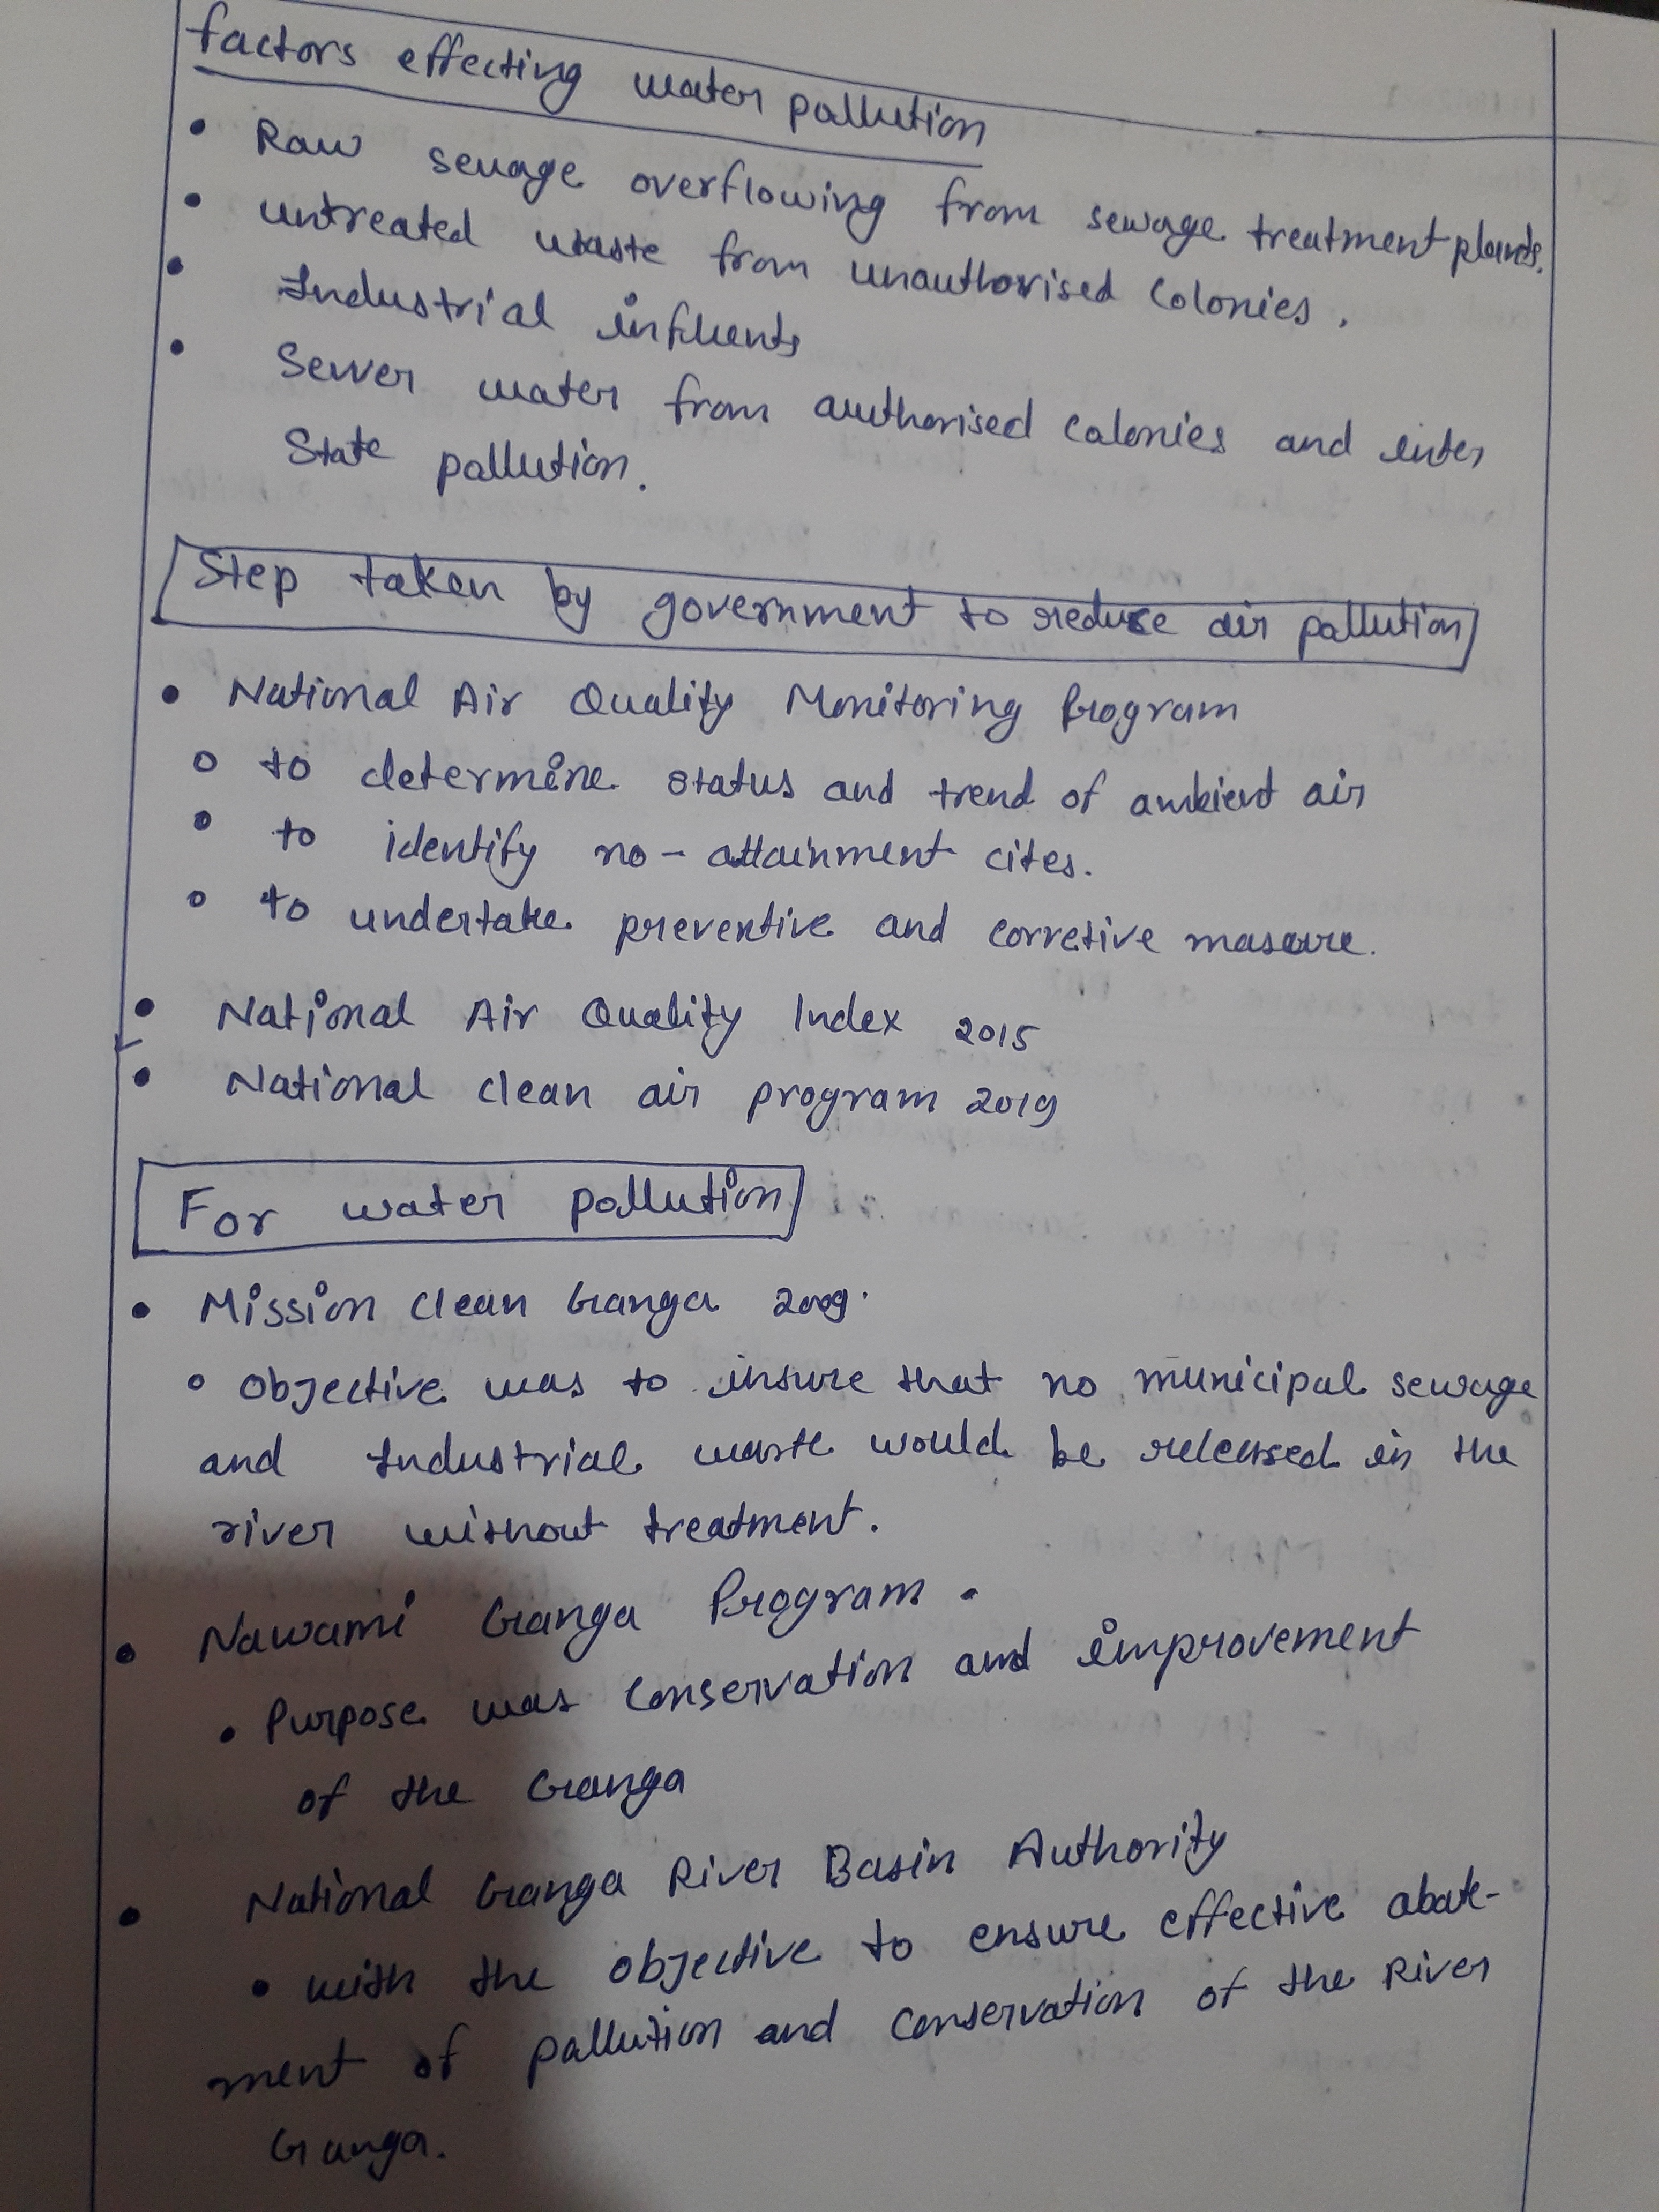 factors effecting water pollution
• Raw sewage overflowing from sewage treatment plants.
• untreated waste from unauthorised colonies.
• Industrial influents
• Sewer water from authorised colonies and inter
State pollution.
Step taken by government to reduce air pollution
• National Air Quality Monitoring Program
o to determine status and trend of ambient air
o to identify no-attainment cites.
o to undertake preventive and corretive masure.
• National Air Quality Index 2015
• National clean air program 2019
For water pollution
• Mission Clean Ganga 2009.
o Objective was to insure that no municipal sewage
and Industrial waste would be released in the
river without treatment.
• Nawami Ganga Program.
• Purpose was conservation and improvement
of the Ganga
• National Ganga River Basin Authority
• with the objective to ensure effective abate-
ment of pollution and conservation of the River
Ganga.